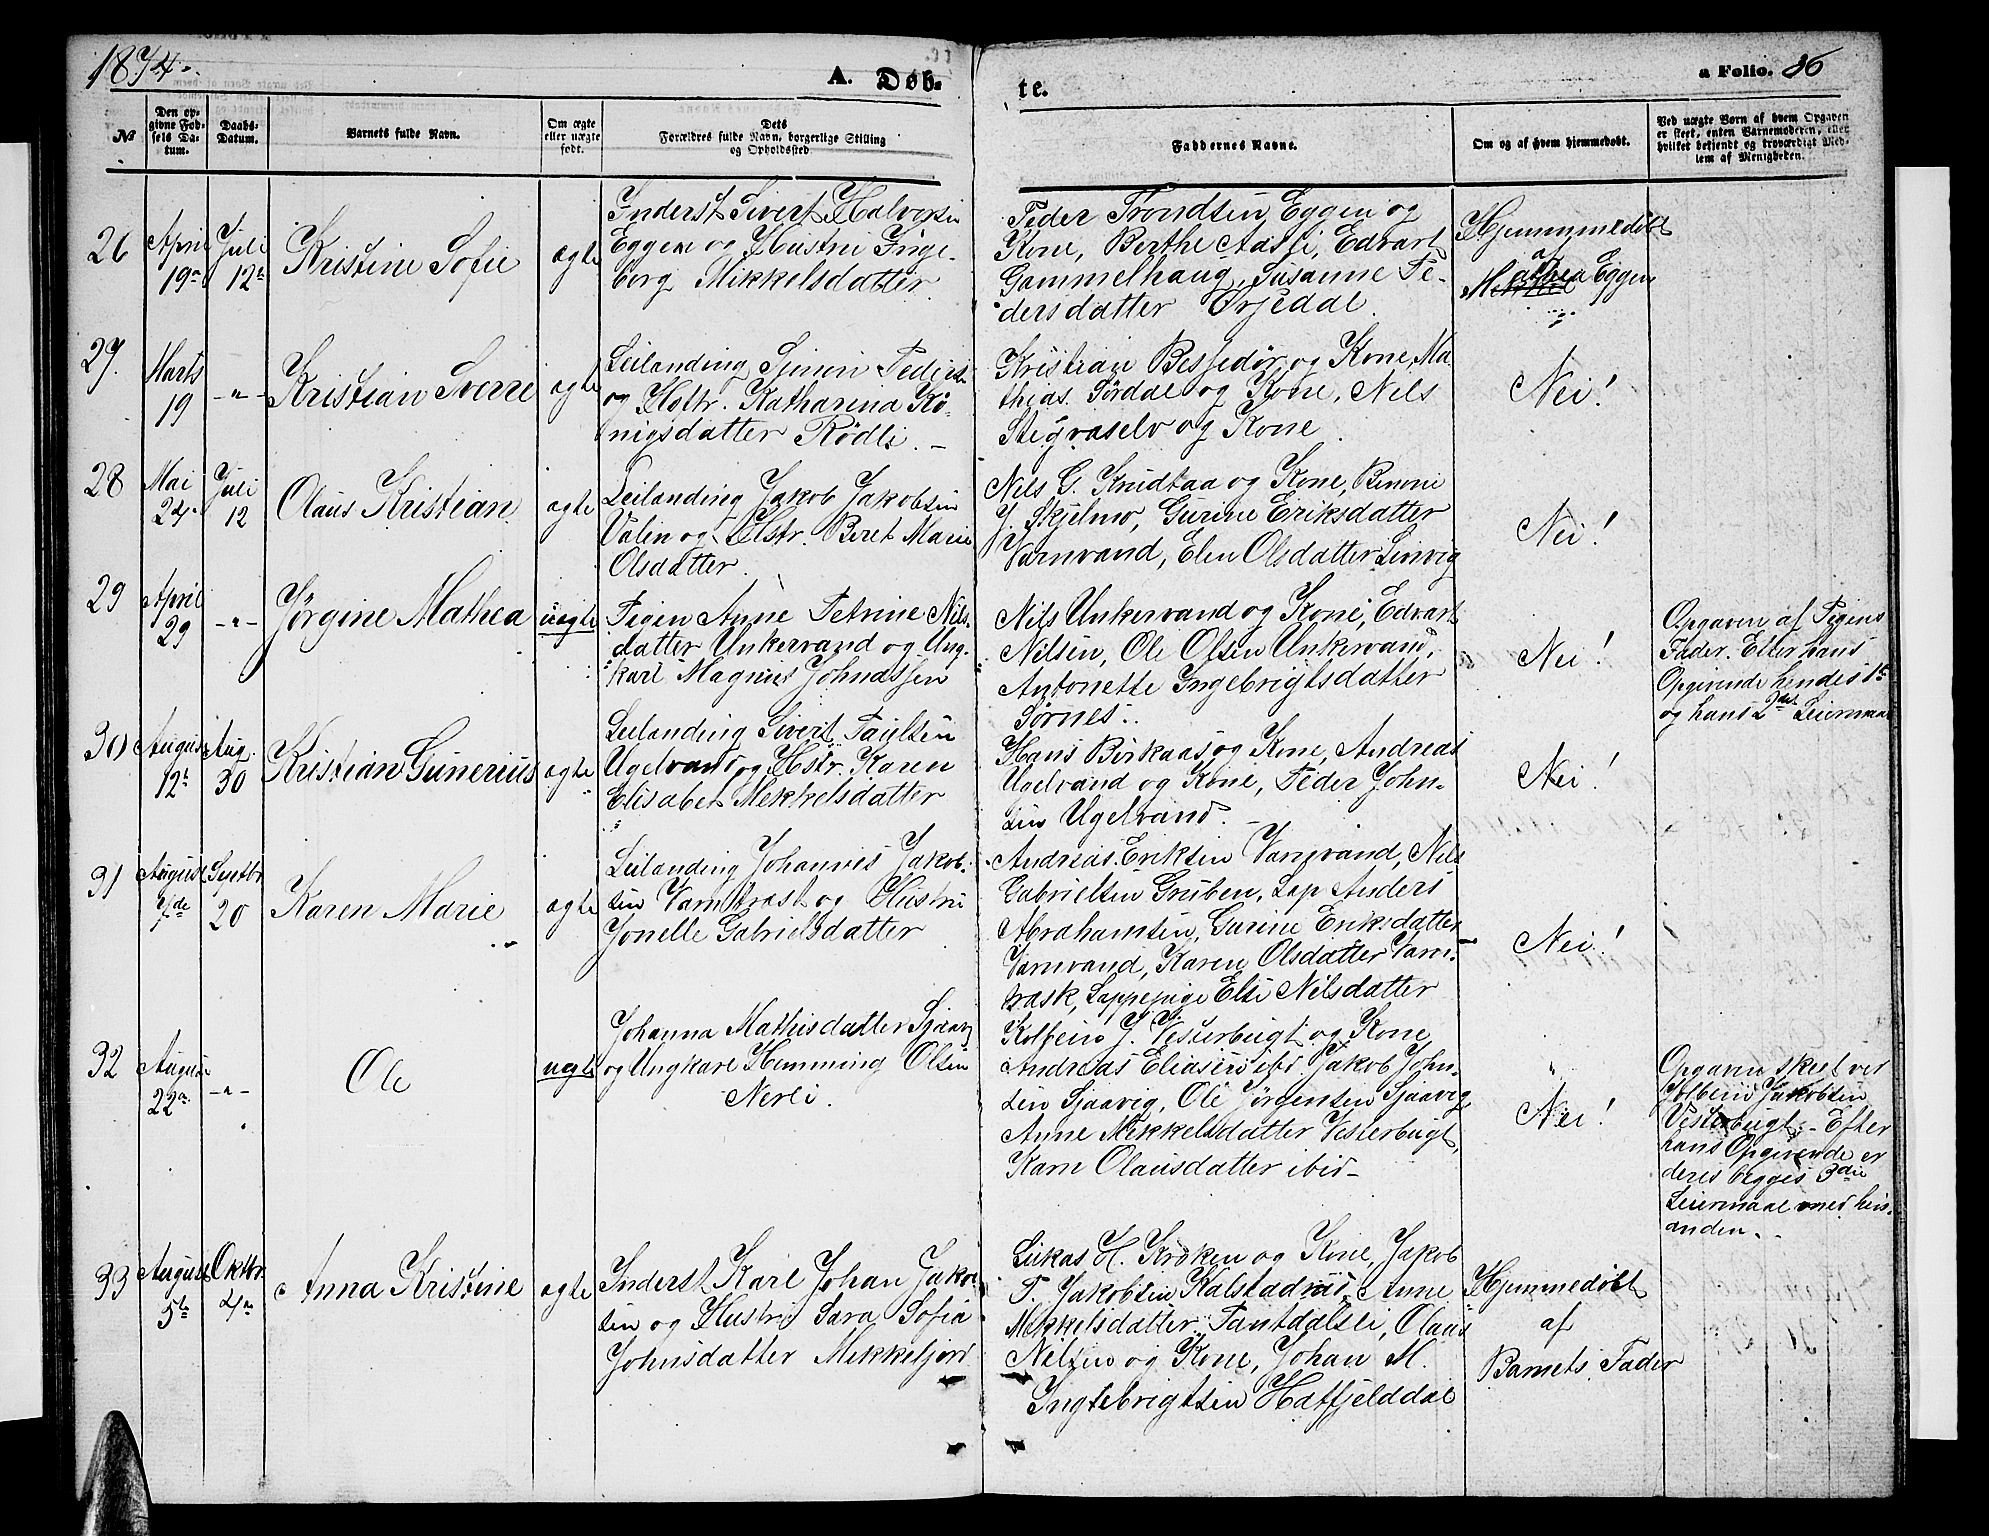 1874.
A. Døb-
te.
a Folio. 36
No
Den op-
givne Fød-
sels Da-
tum.
Daabs-
Datum.
Barnets fulde Navn.
Om ægte
eller uægte
født.
Dets
Forældres fulde Navn, borgerlige Stilling
og Opholdssted.
Faddernes Navne.
Om og af hvem hjemmedøbt.
Ved uægte Børn af hvem Opgaven
er skeet, enten Barnemoderen, eller
hvilket bekjendt og troværdigt Med-
lem af Menigheden.
26
April
19de
Juli
12te
Kristine Sofie
ægte
Inderst Sivert Halvorsen
Eggen og Hustru Inge-
borg Mikkelsdatter
Peder Trondsen Eggen og
Kone, Berthe Aasli, Edvart
Gammelhaug, Susanne Pe-
dersdatter Örjedal.
Hjemmedøbt
af
Mathea Eggen
27.
Marts
19
-"-
Kristian Sverre
ægte
Leilanding Simon Peders.
og Hstr. Katharina Kö-
nigsdatter Rödli. -
Kristian Besjedør og Kone, Ma-
theas Sördal og Kone, Nels
Stegvaselv og Kone.
Nei!
28
Mai
24
Juli
12
Olaus Kristian
ægte
Leilanding Jakob Jakobsen
Valin og Hstr. Beret Marie
Olsdatter.
Nils G. Knudtaa og Kone, Benoni
J. Skjelmo, Gurine Eriksdatter
Varnvand, Elen Olsdatter Linvig
Nei!
29
April
29
-"-
Jørgine Mathea
uægte
Pigen Anne Petrine Nils-
datter Unkervand og Ung-
karl Magnus Johnassen
Nils Unkervand og Kone, Edvart
Nilsen, Ole Olsen Unkervand,
Antonette Ingebrigtsdatter
Sörnes.
Nei!
Opgaven af Pigens
Fader. Efter hans
Opgivende hendes 1ste
og hans 2det Leiermaal
30
August
12te
Aug.
30
Kristian Gunerius
ægte
Leilanding Sivert Paulsen
Ugelvand og Hstr. Karen
Elisabet Mekkelsdatter
Hans Birkaas og Kone, Andreas
Ugelvand og Kone, Peder John-
sen Ugelvand. -
Nei!
31
August
7de
Septbr
20
Karen Marie
ægte
Leilanding Johannes Jakob-
sen Varntrask og Hustru
Jonelle Gabrielsdatter
Andreas Eriksen Varnvand, Nils
Gabrielsen Gruben, Lap Anders
Abrahamsen, Gurine Eriksdatter
Varnvand, Karen Olsdatter Varn-
trask, Lappepige Elsi Nilsdatter
Nei!
32
August
22de
-"-
Ole
uægte
Johanna Mathisdatter Sjaavig
og Ungkarl Hemming Olsen
Nerli.
Kolbein J. Vesterbugt og Kone,
Andreas Eliasen ibd Jakob John-
sen Sjaavig, Ole Jörgensen Sjaavig
Anne Mekkelsdatter Vesterbugt,
Karn Olausdatter ibid -
Nei!
Opgaven skeet ved
Kolbein Jakobsen
Vesterbugt. - Efter
hans Opgivende er
deres begges 3die
Leiermaal med hin-
anden. -
33
August
5te
Oktbr.
4de
Anna Kristine
ægte
Inderst Karl Johan Jakob-
sen og Hustru Sara Sofia
Johnsdatter Mekkeljord
Lukas H. Kroken og Kone, Jakob
P. Jakobsen Kalstadrud, Anne
Mekkelsdatter Pantdalsli, Olaus
Nelsen og Kone, Johan M.
Ingebrigtsen Hatfjelddal
Hjemmedøbt
af
Barnets Fader